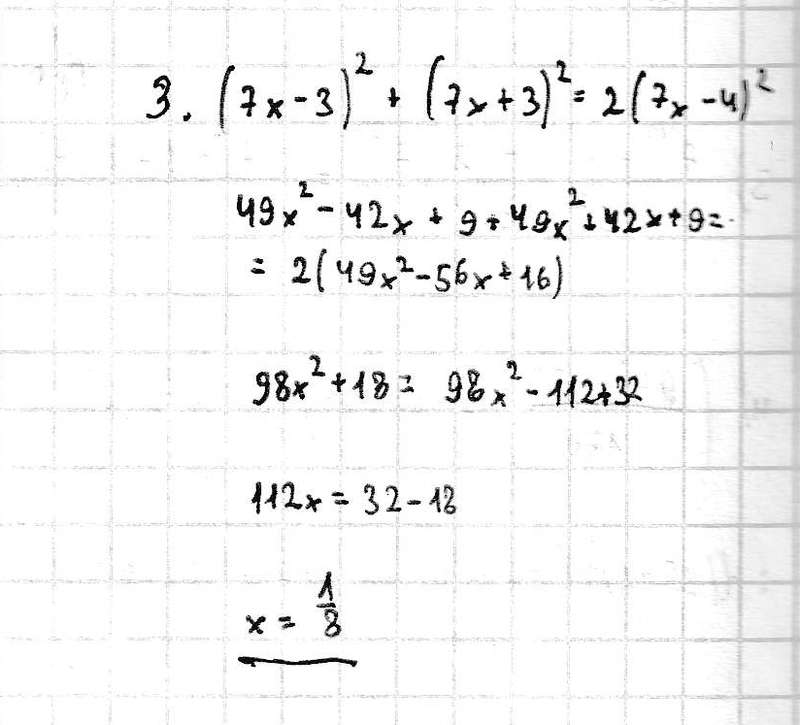 3. (7x-3)² + (7x+3)² = 2(7x-4)²
49x² - 42x + 9 + 49x² + 42x + 9 =
= 2(49x² - 56x + 16)
98x² + 18 = 98x² - 112 + 32
112x = 32 - 18
x = 1/8